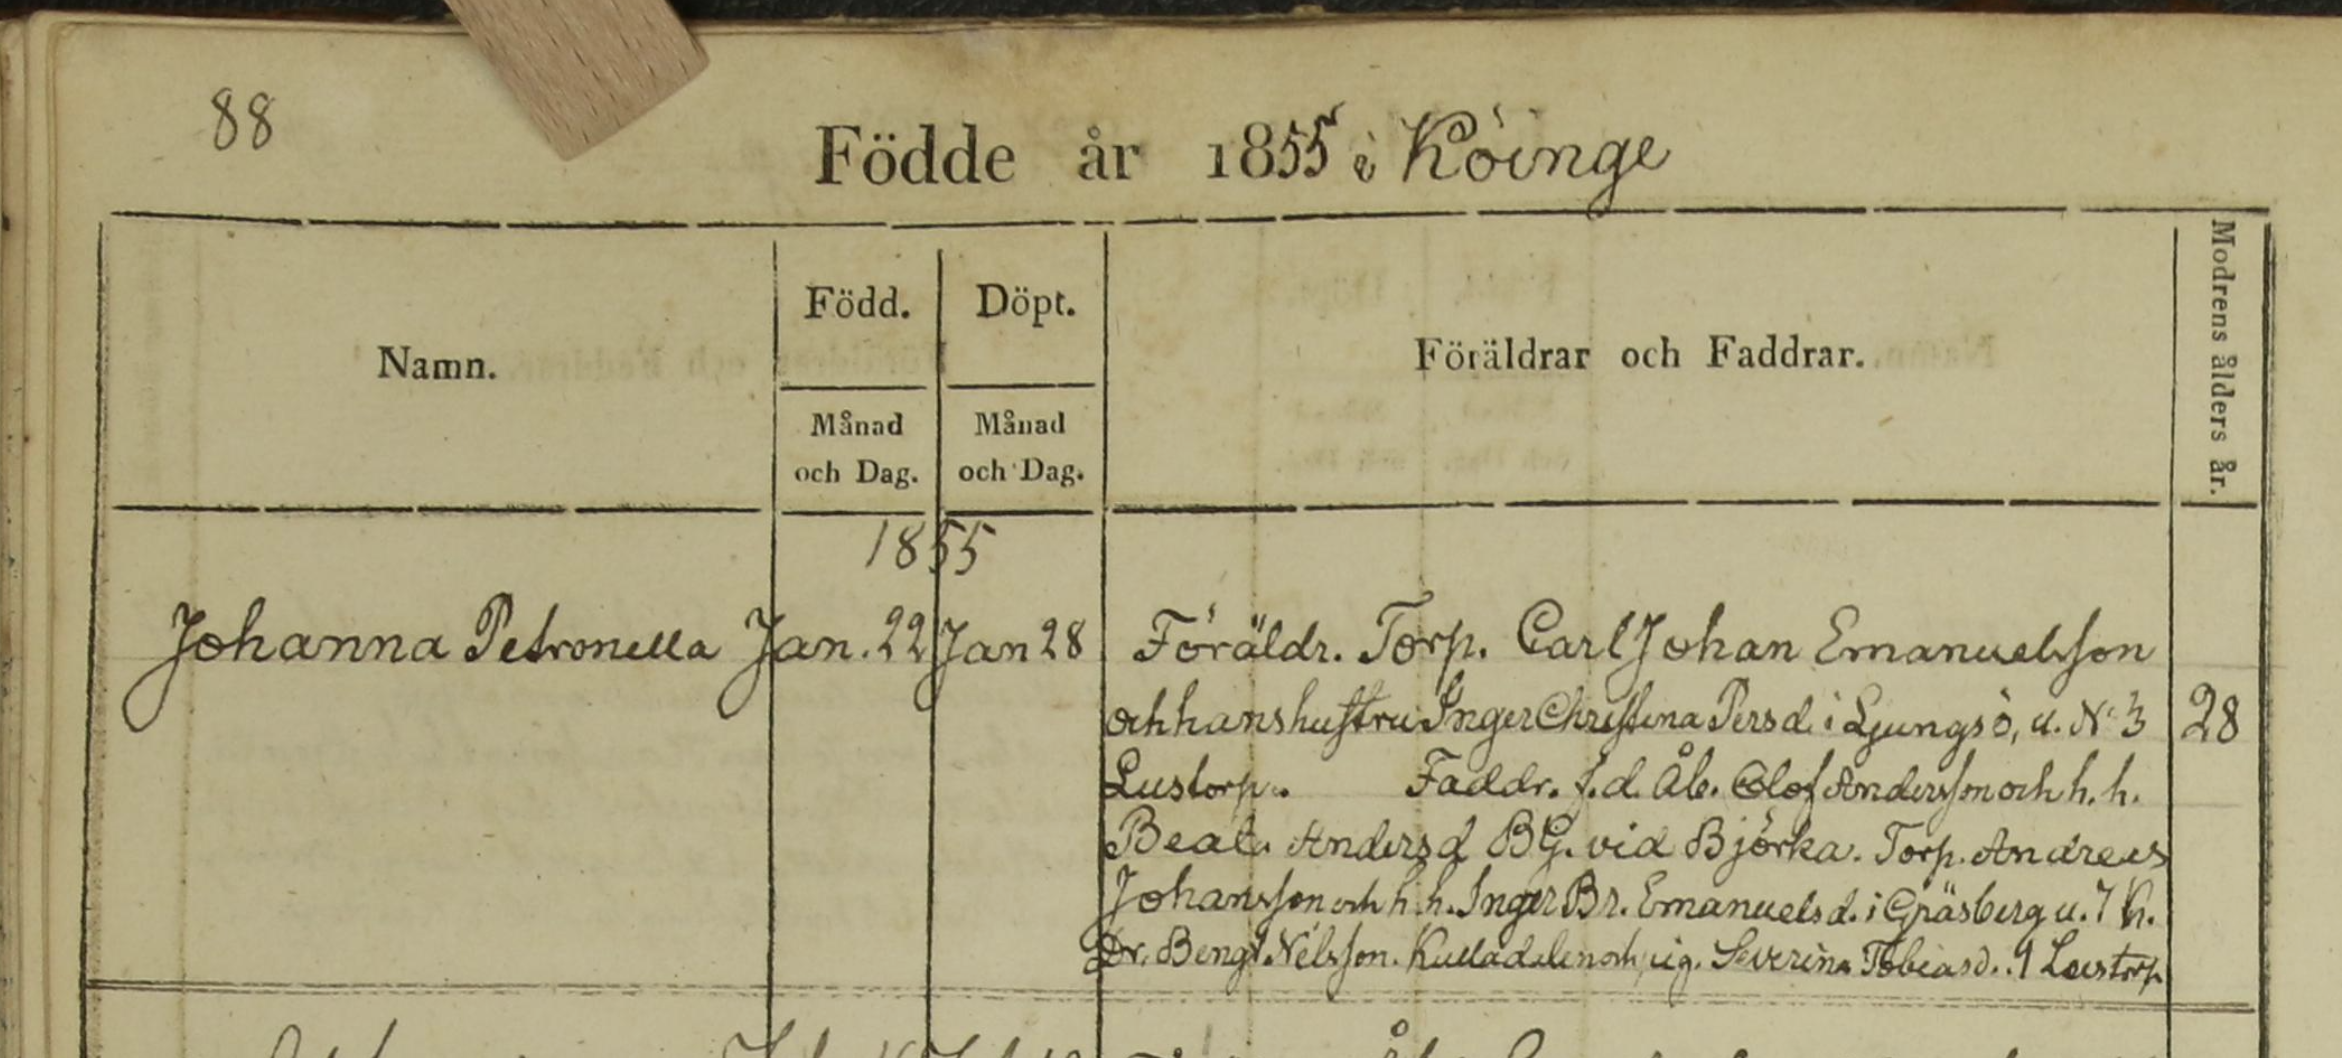 88
Födde år 1855 i Köinge
Namn.
Född.
Månad
och Dag.
Döpt.
Månad
och Dag.
Föräldrar och Faddrar.
Modrens ålders år.
1855
Johanna Petronella Jan. 22 Jan 28 Föräldr. Torp. Carl Johan Emanuelsson
och hans hustru Inger Christina Persd. i Ljungsö, u. N. 3 28
Lustorp. Faddr. f.d. Åb. Olof Andersson och h.h.
Beata Andersd BG. vid Björka. Torp. Andreas
Johansson och h.h. Inger Br. Emanuelsd. i Gräsberg u. 7 K.
Dr. Bengt Nilsson. Kulladalen och pig. Severina Tobiasd. 1 Lustorp